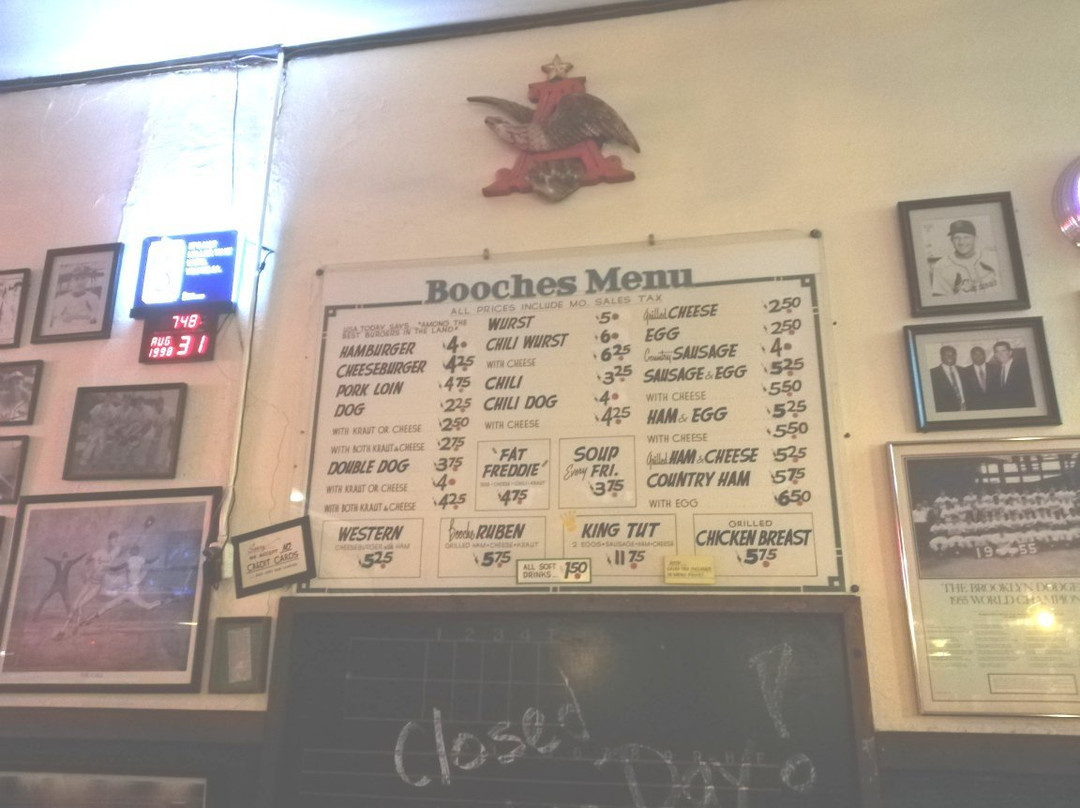 748
AUG
1998 31
Booches Menu
ALL PRICES INCLUDE MO. SALES TAX
USA TODAY SAYS, "AMONG THE
BEST BURGERS IN THE LAND"
HAMBURGER 4.
CHEESEBURGER 4.25
PORK LOIN 4.75
DOG 2.25
WITH KRAUT OR CHEESE 2.50
WITH BOTH KRAUT & CHEESE 2.75
DOUBLE DOG 3.75
WITH KRAUT OR CHEESE 4.
WITH BOTH KRAUT & CHEESE 4.25
WURST 5.
CHILI WURST 6.
WITH CHEESE 6.25
CHILI 3.25
CHILI DOG 4.
WITH CHEESE 4.25
"FAT
FREDDIE"
4.75
SOUP
Every FRI.
3.75
Grilled CHEESE 2.50
EGG 2.50
Country SAUSAGE 4.
SAUSAGE & EGG 5.25
WITH CHEESE 5.50
HAM & EGG 5.25
WITH CHEESE 5.50
Grilled HAM & CHEESE 5.25
COUNTRY HAM 5.75
WITH EGG 6.50
WESTERN
CHEESEBURGER with HAM
5.25
Booches RUBEN
GRILLED HAM-CHEESE-KRAUT
5.75
KING TUT
2 EGGS-SAUSAGE-HAM-CHEESE
11.75
GRILLED
CHICKEN BREAST
5.75
ALL SOFT
DRINKS... 1.50
Sorry
WE ACCEPT NO
CREDIT CARDS
1 2 3 4
Closed
Day!
1955
THE BROOKLYN DODGE
1955 WORLD CHAMPION